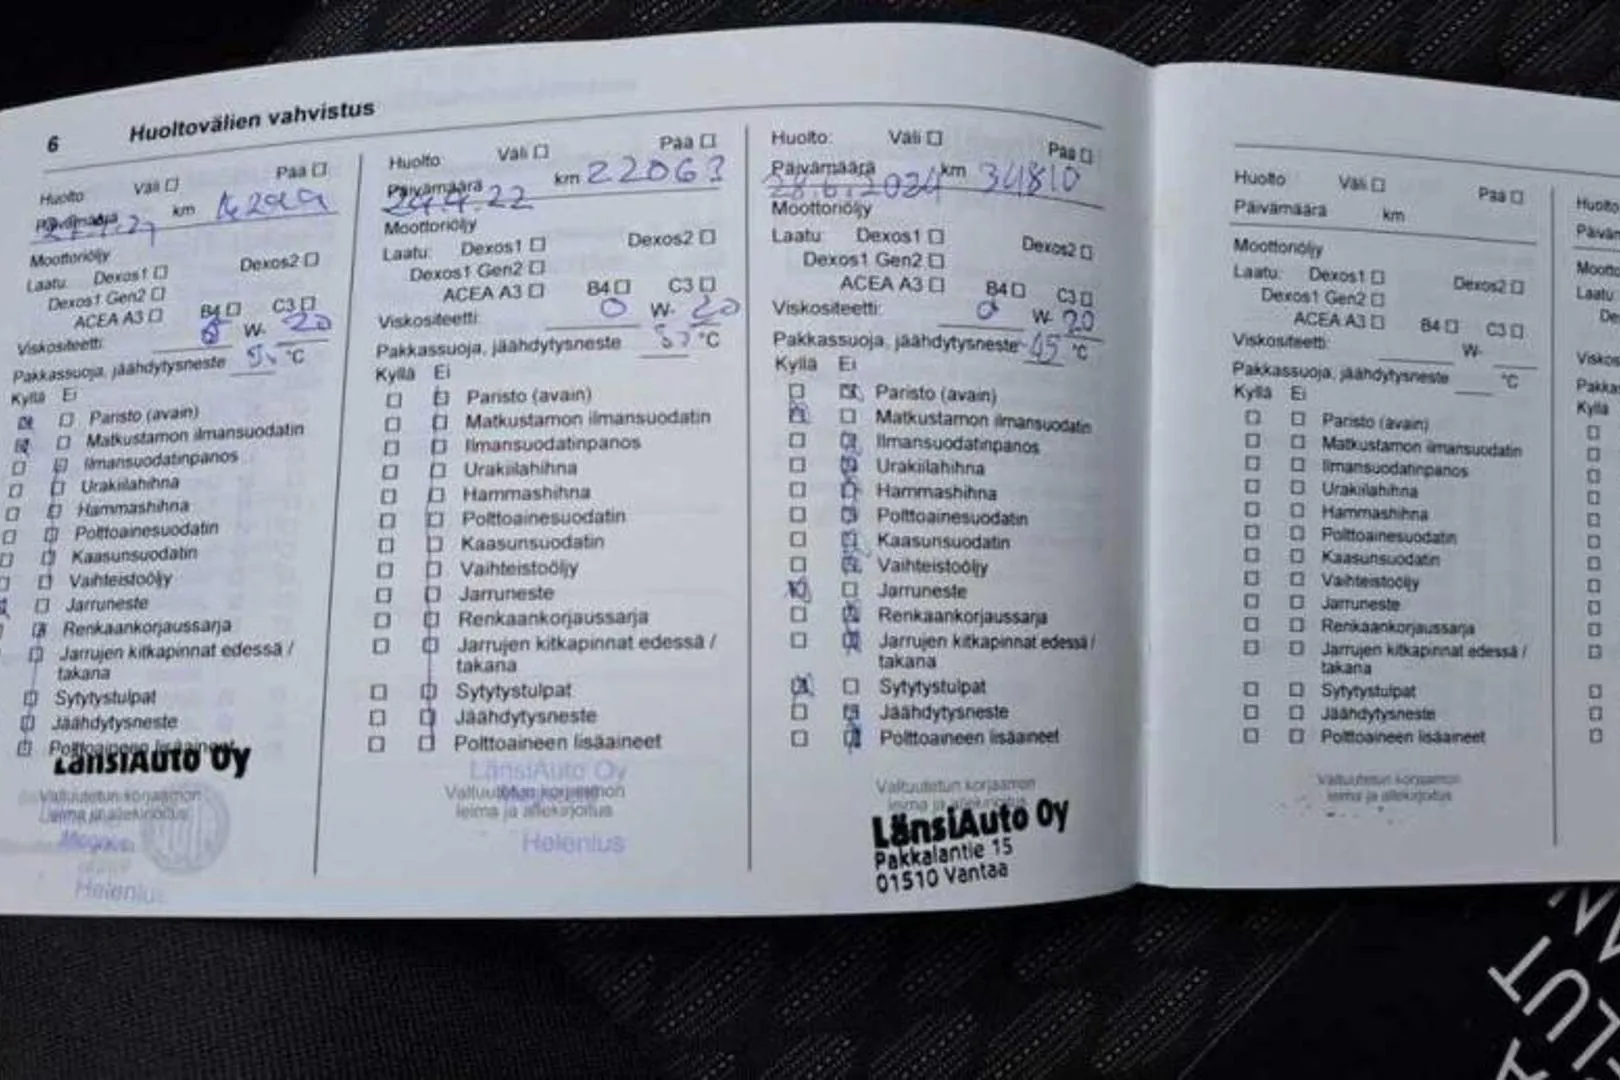 6 Huoltovälien vahvistus
Huolto Väli Pää
Päivämäärä km
Moottoriöljy
Laatu: Dexos1 Dexos2
Dexos1 Gen2
ACEA A3 B4 C3
Viskositeetti: 0 W- 20
Pakkassuoja, jäähdytysneste °C
Kyllä Ei
Paristo (avain)
Matkustamon ilmansuodatin
Ilmansuodatinpanos
Urakiilahihna
Hammashihna
Polttoainesuodatin
Kaasunsuodatin
Vaihteistoöljy
Jarruneste
Renkaankorjaussarja
Jarrujen kitkapinnat edessä /
takana
Sytytystulpat
Jäähdytysneste
Polttoaineen lisäaineet
LänsiAuto Oy
Valtuutetun korjaamon
leima ja allekirjoitus
Helenius
Huolto Väli Pää
Päivämäärä km 22063
24.4.22
Moottoriöljy
Laatu: Dexos1 Dexos2
Dexos1 Gen2
ACEA A3 B4 C3
Viskositeetti: 0 W- 20
Pakkassuoja, jäähdytysneste °C
Kyllä Ei
Paristo (avain)
Matkustamon ilmansuodatin
Ilmansuodatinpanos
Urakiilahihna
Hammashihna
Polttoainesuodatin
Kaasunsuodatin
Vaihteistoöljy
Jarruneste
Renkaankorjaussarja
Jarrujen kitkapinnat edessä /
takana
Sytytystulpat
Jäähdytysneste
Polttoaineen lisäaineet
LänsiAuto Oy
Valtuutetun korjaamon
leima ja allekirjoitus
Helenius
Huolto: Väli Pää
Päivämäärä km 34810
28.6.2024
Moottoriöljy
Laatu: Dexos1 Dexos2
Dexos1 Gen2
ACEA A3 B4 C3
Viskositeetti: 0 W- 20
Pakkassuoja, jäähdytysneste -45 °C
Kyllä Ei
Paristo (avain)
Matkustamon ilmansuodatin
Ilmansuodatinpanos
Urakiilahihna
Hammashihna
Polttoainesuodatin
Kaasunsuodatin
Vaihteistoöljy
Jarruneste
Renkaankorjaussarja
Jarrujen kitkapinnat edessä /
takana
Sytytystulpat
Jäähdytysneste
Polttoaineen lisäaineet
Valtuutetun korjaamon
leima ja allekirjoitus
LänsiAuto Oy
Pakkalantie 15
01510 Vantaa
Huolto Väli Pää
Päivämäärä km
Moottoriöljy
Laatu: Dexos1 Dexos2
Dexos1 Gen2
ACEA A3 B4 C3
Viskositeetti: W-
Pakkassuoja, jäähdytysneste °C
Kyllä Ei
Paristo (avain)
Matkustamon ilmansuodatin
Ilmansuodatinpanos
Urakiilahihna
Hammashihna
Polttoainesuodatin
Kaasunsuodatin
Vaihteistoöljy
Jarruneste
Renkaankorjaussarja
Jarrujen kitkapinnat edessä /
takana
Sytytystulpat
Jäähdytysneste
Polttoaineen lisäaineet
Valtuutetun korjaamon
leima ja allekirjoitus
Huolto
Laatu:
Kyllä